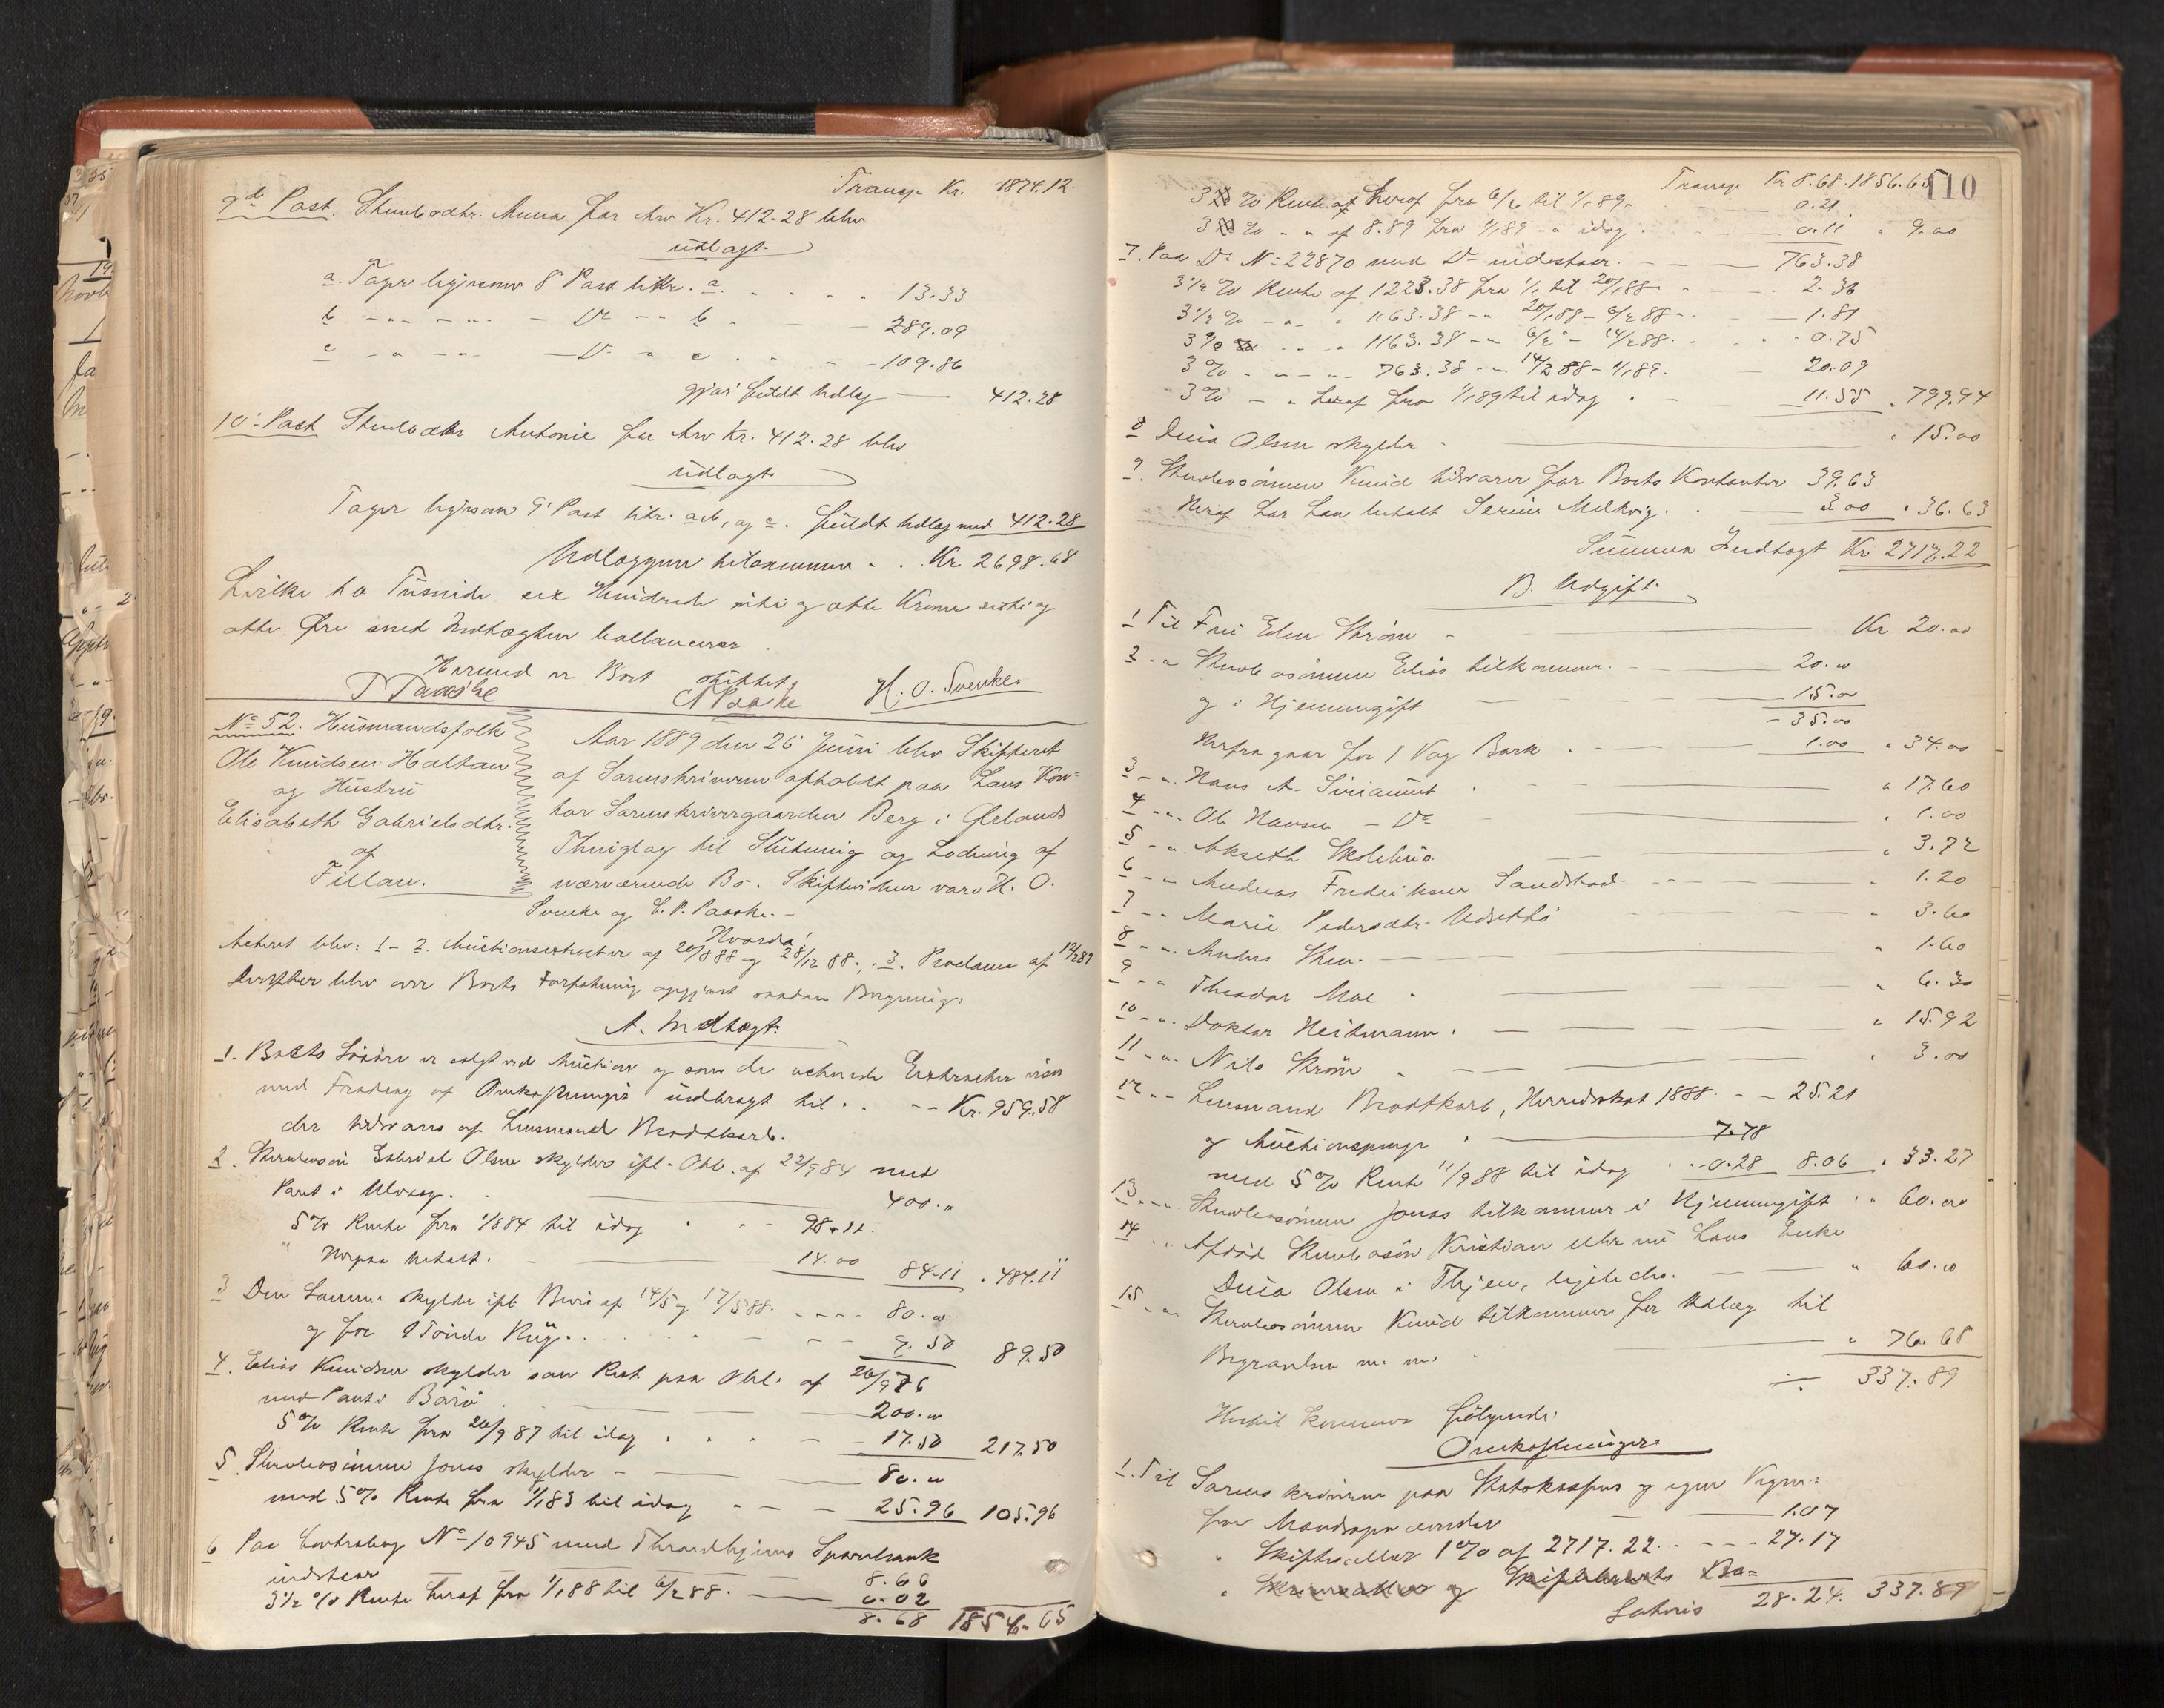 Transp. Kr. 1874.12
9de Post. Stervbodtr. Anna for Arv Kr. 412.28 blev
udlagt.
a. Tager ligesom 8 Post litr. a. 13.33
b - - - Do - b - 289.09
c - - - Do - c - 109.86
gjør fuldt Udlæg 412.28
10de Post Stervbodtr Antonie for Arv Kr. 412.28 blev
udlagt
Tager ligesom 9de Post litr. a, b, og c. fuldt Udlæg med 412.28
Udlæggene tilsammen Kr. 2698.68
hvilke to Tusinde sex Hundrede niti og otte Kroner sexti og
otte Øre med Indtægten ballancerer.
Hermed er Boet sluttet
Paaske C P Paaske H. O. Svenke.
No 52. Husmandsfolk
Ole Knudsen Haltan
og Hustru
Elisabeth Gabrielsdtr.
af
Fillan.
Aar 1889 den 26 Juni blev Skifteret
af Sorenskriveren afholdt paa hans Kon-
tor Sorenskrivergaarden Berg i Ørlands
Thinglag til Slutning og Lodning af
nærværende Bo. Skiftevidner vare H. O.
Svenke og C. P. Paaske.-
Acteret blev: 1-2. Auctionsextracter af 20/8 88 og 28/12 88., 3. Proclama af 12/2 89
Hvorda!
Derefter blev over Boets Forfatning opgjort saadan Beregning:
A. Indtægt:
1. Boets Løsøre er solgt ved Auction og som de acterede Extracter viser
med Fradrag af Omkostninger udbragt til Kr. 959.58
der tilsvares af Lensmand Brodtkorb.
2. Stervbosøn Gabriel Olsen skylder ifl. Obl. af 22/9 84 med
Pant i Ulvøy. 400."
5% Rente fra 1/8 84 til idag 98.11
" Herpaa betalt. 14.00 84.11 " 484.11
3 Den Samme skylder ifl. Bevis af 14/5 og 17/5 88. 80."
og for 1 Tønde Rug 9.50 89.50
4. Elias Knudsen skylder som Rest paa Obl. af 26/9 76
med Pant i Barø 200."
5% Rente fra 26/9 87 til idag 17.50 217.50
5. Stervbosønnen Jonas skylder 80."
med 5% Rente fra 1/1 83 til idag 25.96 105.96
6 Paa Contrabog No 10945 med Throndhjems Sparebank
indstaar 8.66
3 1/2 % Rente heraf fra 1/1 88 til 6/2 88. 0.02
8.68 1856.65
110
Transp. Kr 8.68. 1856.65
3 % Rente af heraf fra 6/2 til 1/1 89. 0.21
3 % " " af 8.89 fra 1/1 89 - idag 0.11 " 9.00
7. Paa Do No 22870 med Do indestaar. 763.38
3 1/2 % Rente af 1223.38 fra 1/1 til 20/1 88 2.36
3 1/2 % - " 1163.38 - 20/1 88 - 6/2 88 1.81
3 % " " 1163.38 - 6/2 " - 14/2 88 0.75
3 % " - 763.38 - 14/2 88 - 1/1 89. 20.09
3 % - " heraf fra 1/1 89 til idag 11.55 " 799.94
8 Dina Olsen skylder " 15.00
9. Stervbosønnen Knud tilsvarer for Boets Kontanter 39.63
Heraf har han betalt Serine Melkvig. 3.00 " 36.63
Summa Indtægt Kr 2717.22
B. Udgift.
1 Til Fru Elen Strøm Kr 20.00
2 - " Stervbosønnen Elias tilkommer. 20."
og i Hjemmegift 15."
35.00
Herfra gaar for 1 Vog Bark 1.00 " 34.00
3 - " Hans A. " 17.60
4 - " Ole Hansen - Do " 1.00
5 - " Akseth Skolehus. " 3.72
6 - " Andreas Fredriksen Sandstad " 1.20
7 - " Marie Pedersdtr. Udsettø " 3.60
8 - " Anders " 1.60
9 - " Theodor Moe " 6.30
10 - " Doktor Heitmann " 15.92
11 - " Nils Strøm " 3.00
12 - " Lensmand Brodtkorb, Herredsskat 1888 25.21
og Auctionspenge 7.78
med 5% Rente 11/9 88 til idag 0.28 8.06 " 33.27
13 - " Stervbosønnen Jonas tilkommer i Hjemmegift " 60.00
14 " Afdød Stervbosøn Kristian eller nu hans Enke
Dina Olsen i ligeledes. " 60."
15 - " Stervbosønnen Knud tilkommer for Udlæg til
Begravelsen m. m. " 76.68
÷ 337.89
Hertil kommer følgende:
Omkostninger
1. Til Sorenskriveren paa Statskassens og egne Vegne:
for 1.07
" Skiftesallær 1% af 2717.22. 27.17
" og
Lateris 28.24. 337.89